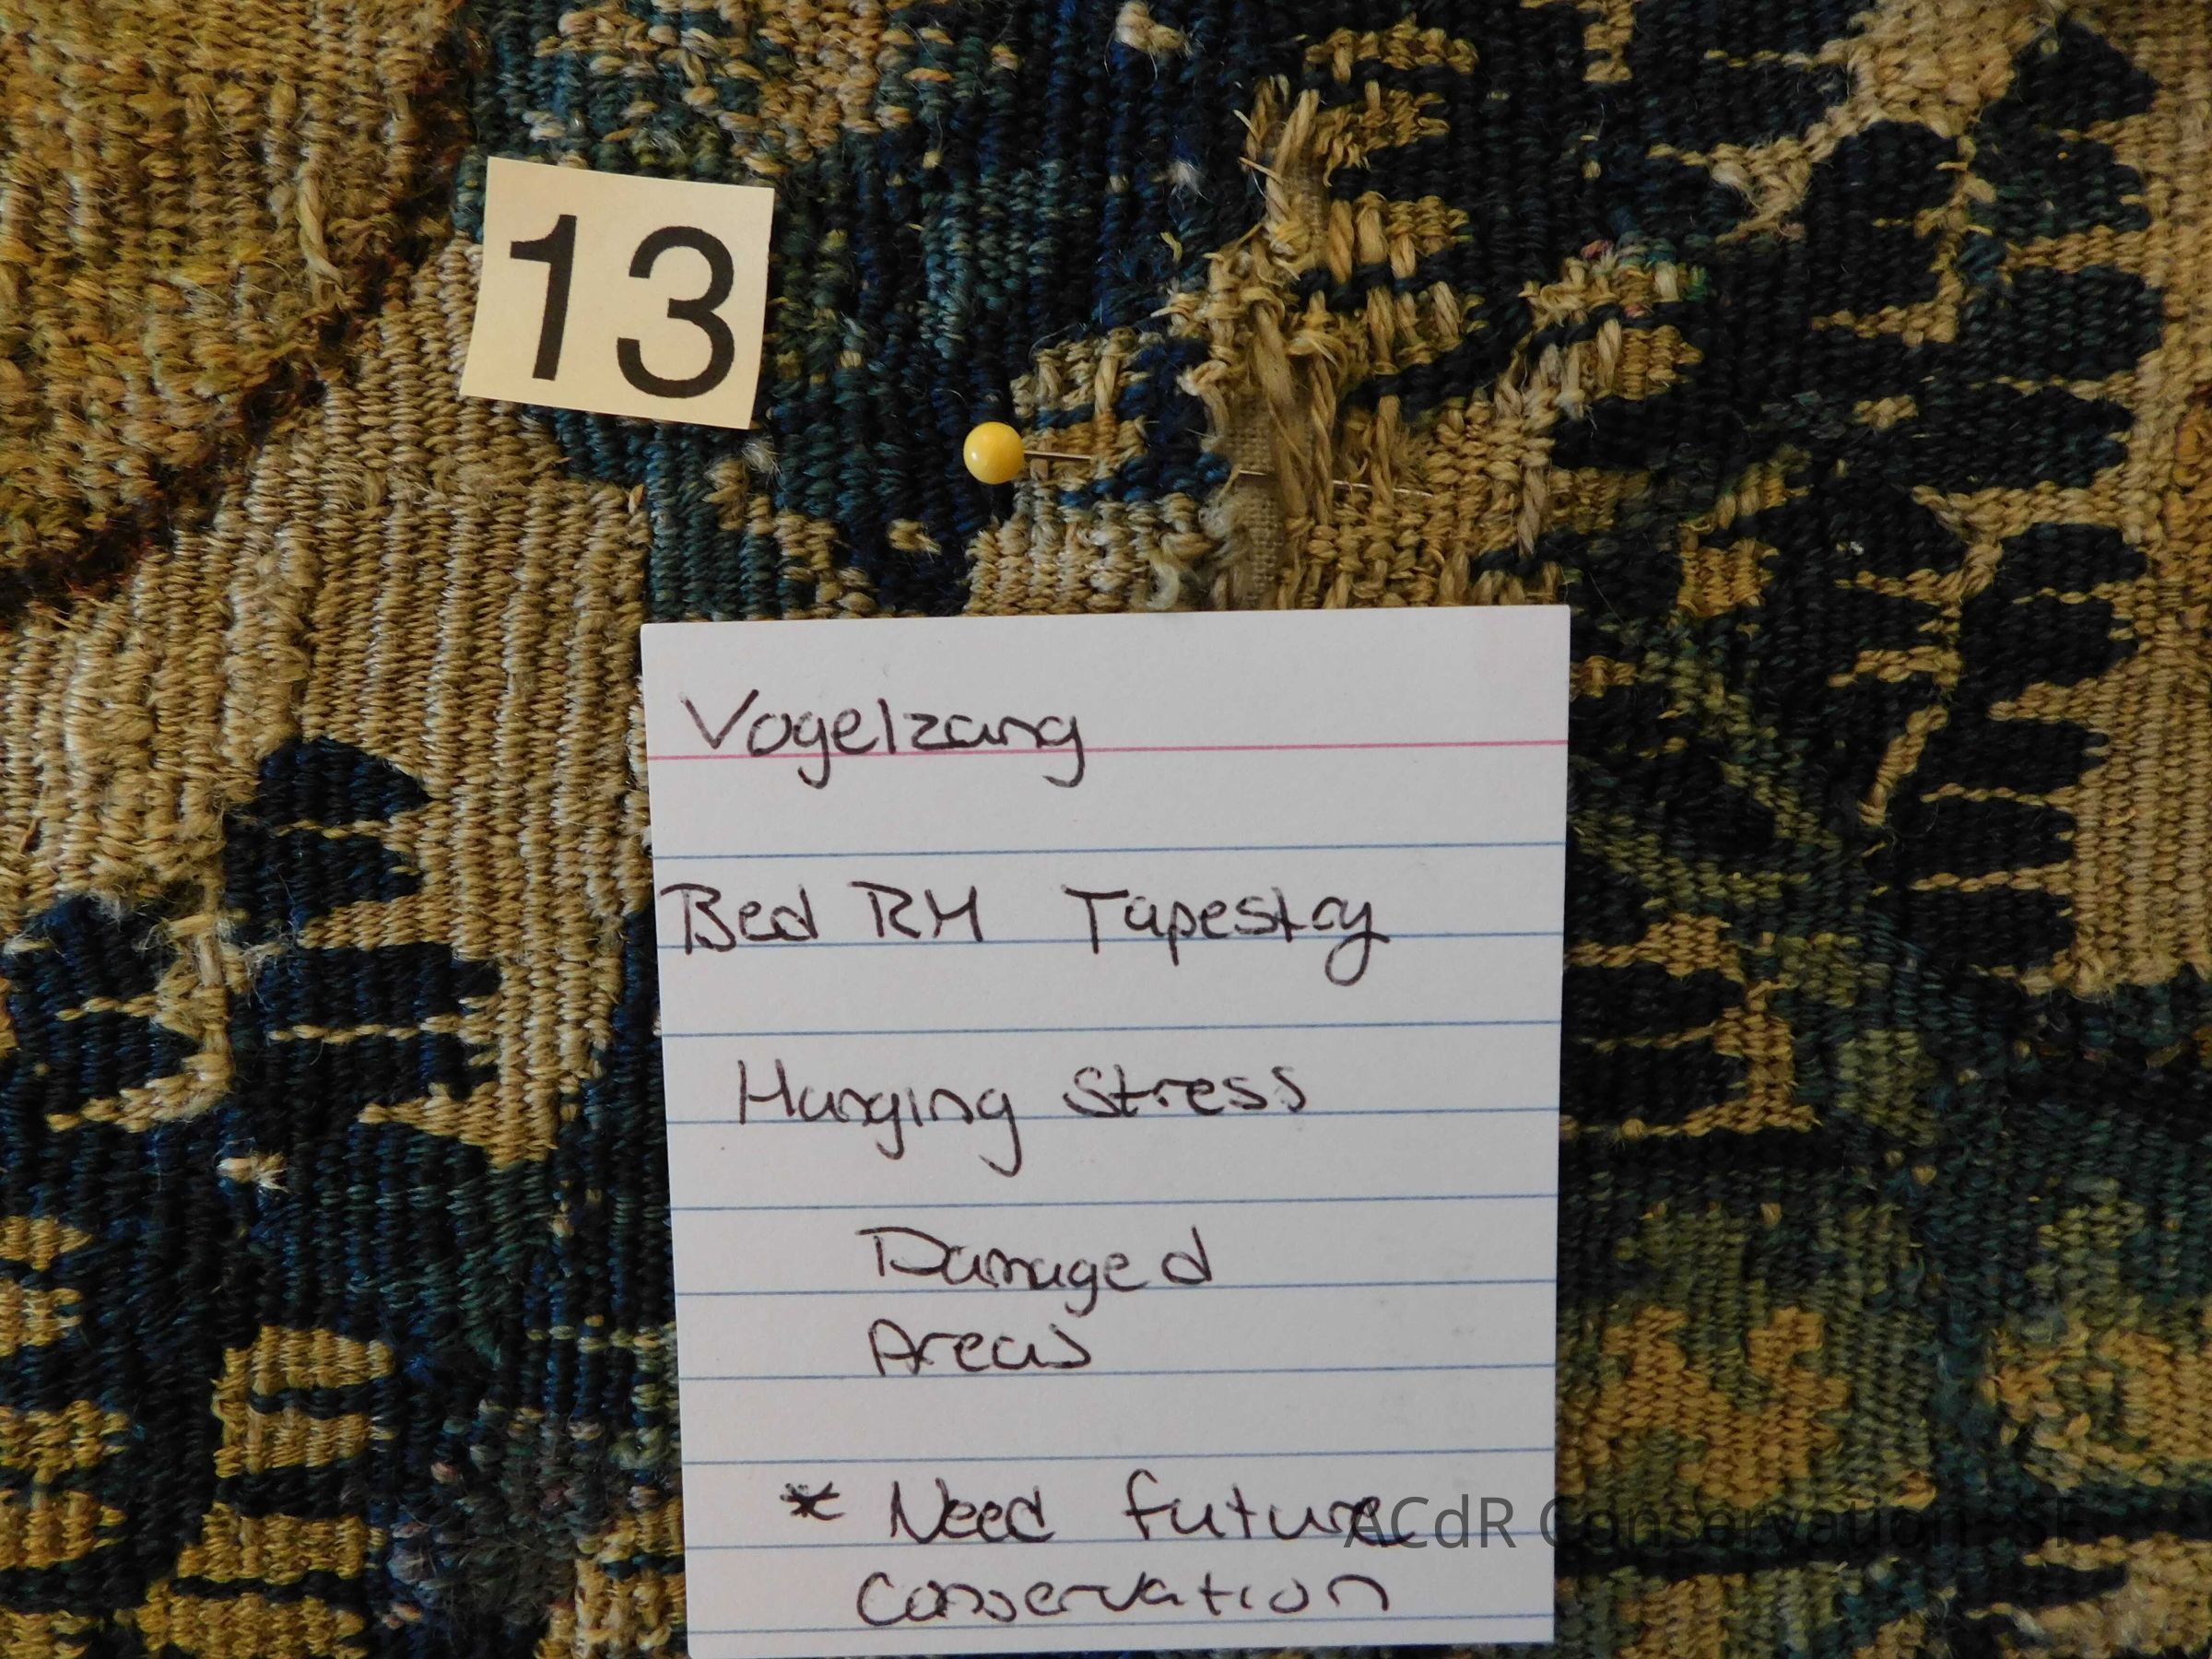 13
Vogelzang
Bed RM Tapestry
Hanging Stress
Damaged
Areas
* Need future
Conservation
ACdR Conservation-SF